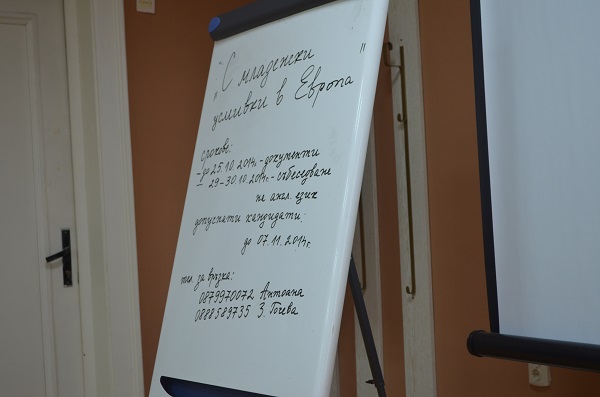 „С младежки
усмивки в Европа"
срокове:
- до 25.10.2014г. - документи
- 29-30.10.2014г. - събеседване
на англ. език
допуснати кандидати:
до 07.11.2014г.
тел. за връзка:
0879970072 Антоана
0888589735 З. Гочева